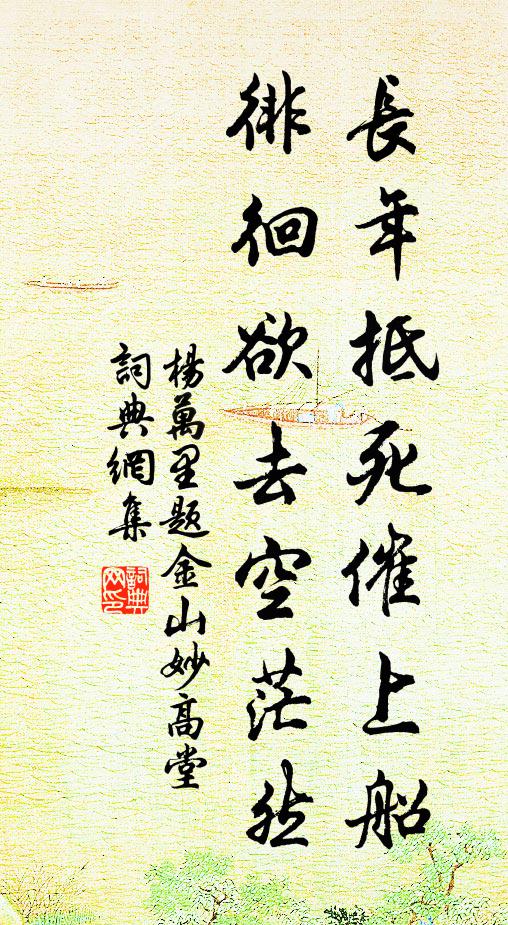 長年抵死催上船
徘徊欲去空茫然
楊萬里題金山妙高堂
詞典網集
詞典
网印